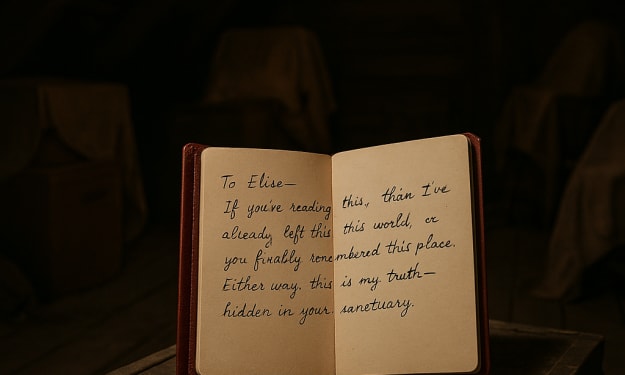 To Elise—
If you've reading this., than I've
already left this this world, or
you finably ronembered this place.
Either way. this is my truth—
hidden in your. sanctuary.